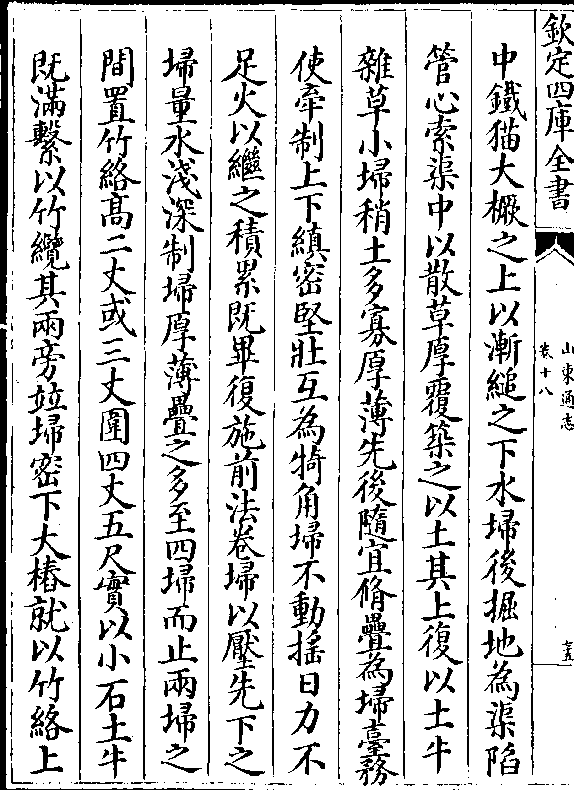 欽定四庫全書
山東通志
卷十八
中鐵猫大橛之上以漸縋之下水埽後掘地為渠陷
管心索渠中以散草厚覆築之以土其上復以土牛
雜草小埽稍土多寡厚薄先後隨宜脩疊為埽臺務
使牽制上下縝密堅壯互為犄角埽不動揺日力不
足火以繼之積累既畢復施前法卷埽以壓先下之
埽量水淺深制埽厚薄疊之多至四埽而止兩埽之
間置竹絡髙二丈或三丈圍四丈五尺實以小石土牛
既滿繫以竹纜其兩旁竝埽密下大樁就以竹絡上